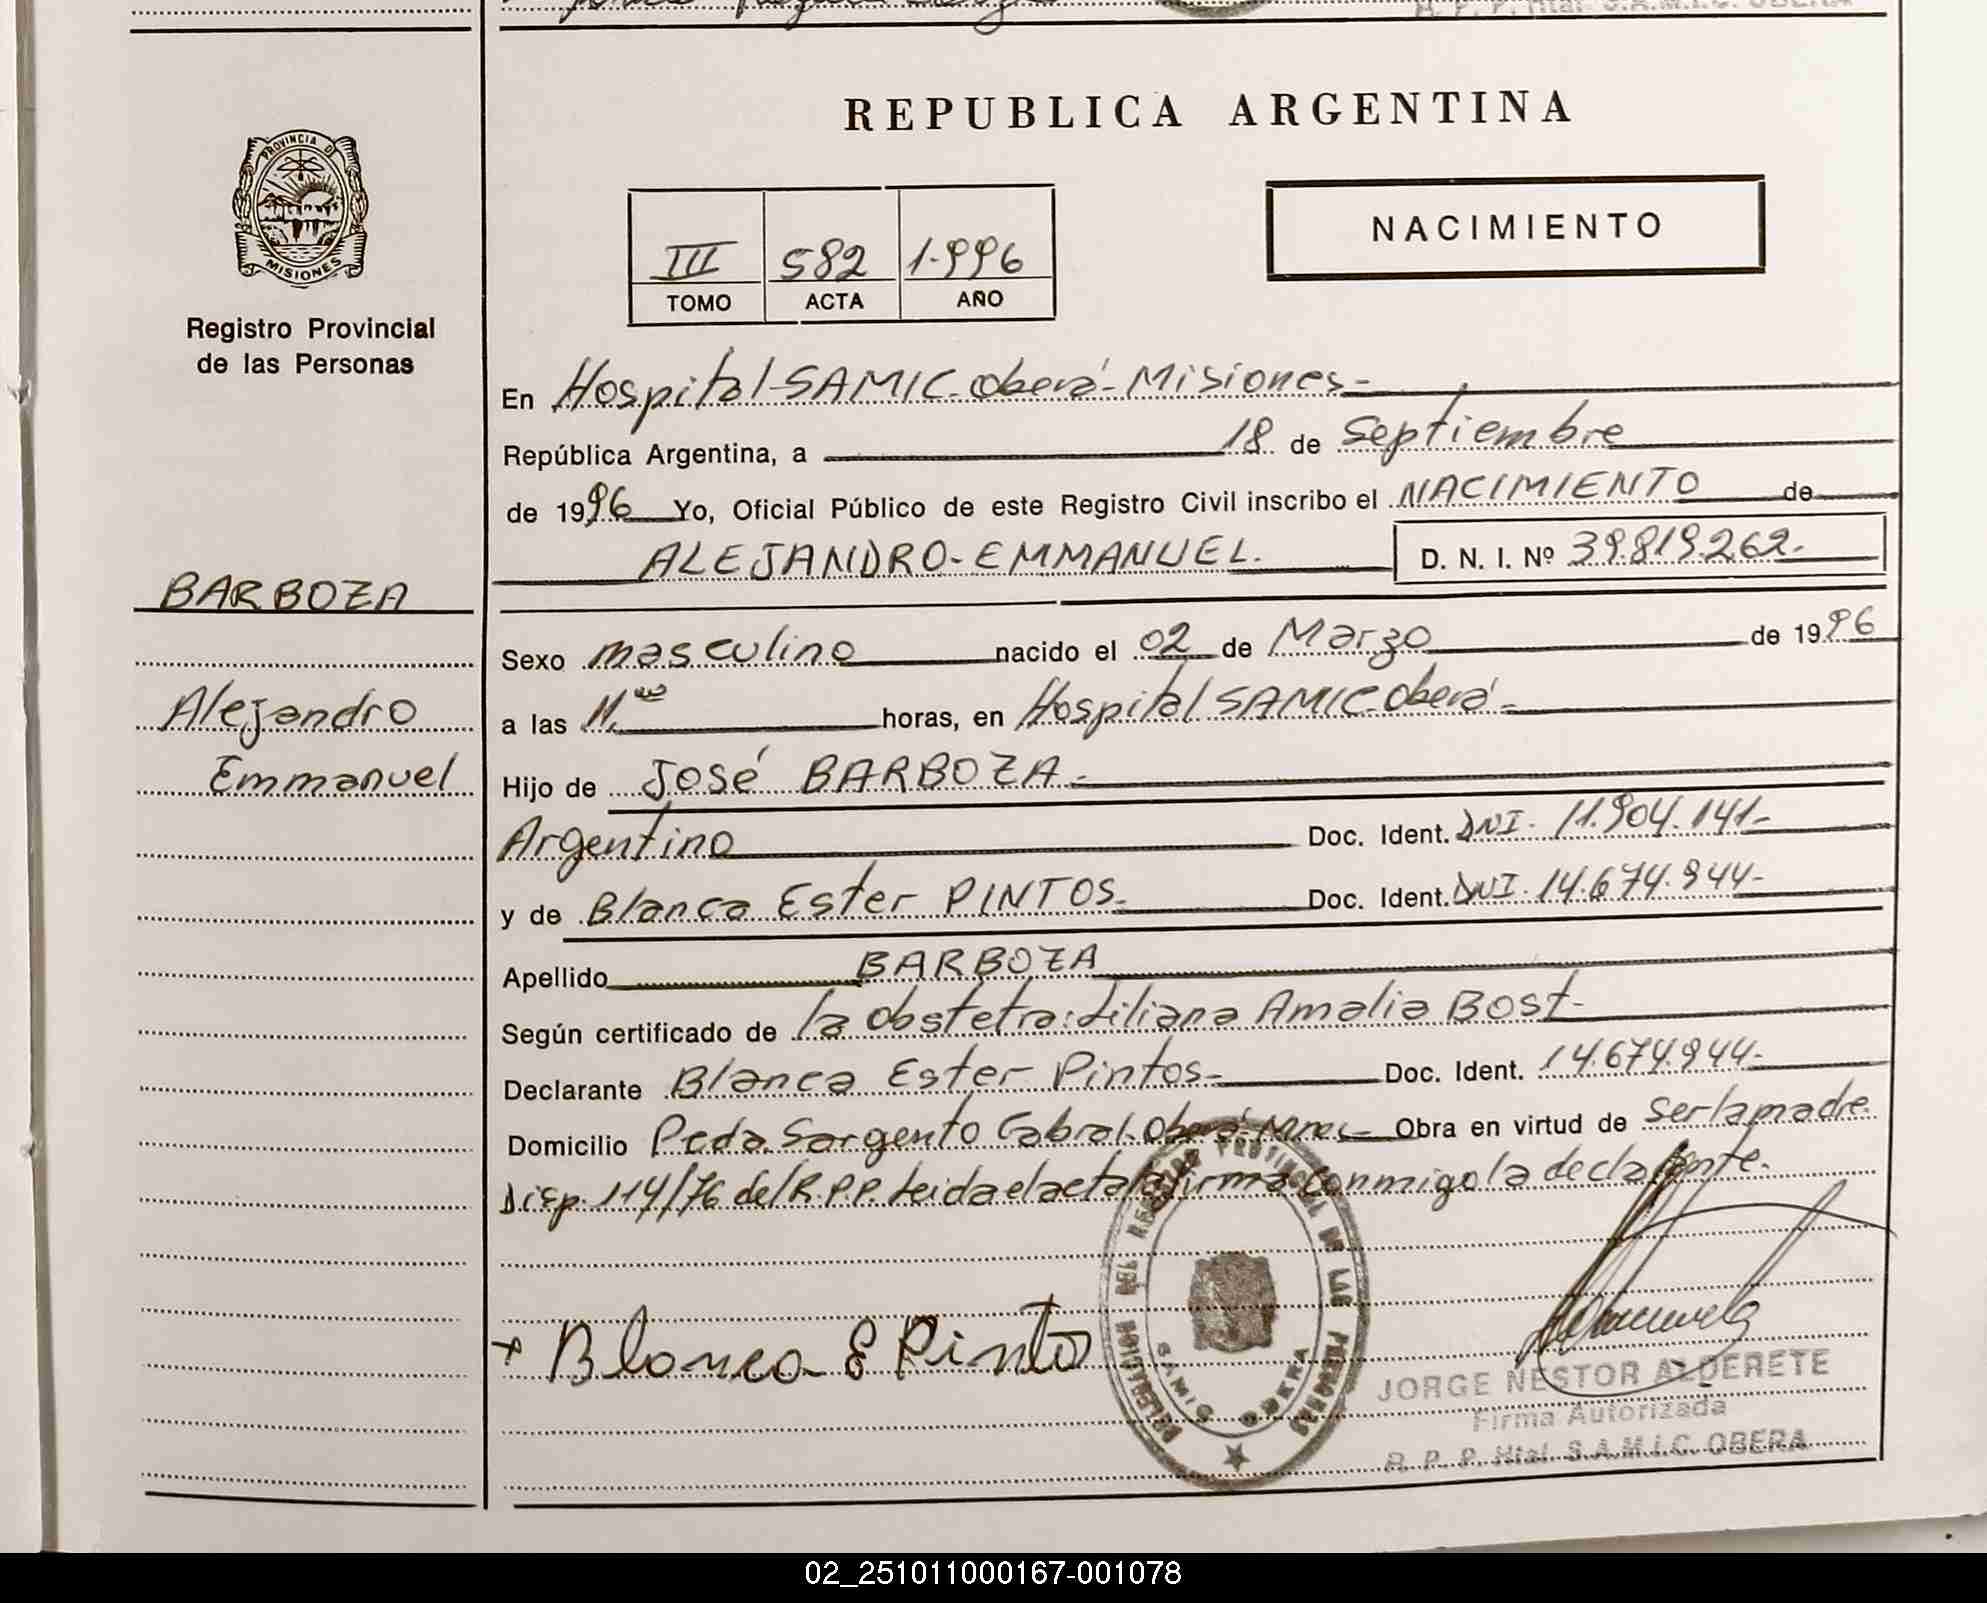 PROVINCIA DE
MISIONES
Registro Provincial
de las Personas
BARBOZA
Alejandro
Emmanuel
REPUBLICA ARGENTINA
III 582 1.996
TOMO ACTA AÑO
NACIMIENTO
En Hospital-SAMIC-Oberá-Misiones-
República Argentina, a 18 de Septiembre
de 1996 Yo, Oficial Público de este Registro Civil inscribo el NACIMIENTO de
ALEJANDRO-EMMANUEL. D. N. I. Nº 39.819.262-
Sexo masculino nacido el 02 de Marzo de 1996
a las 11.oo horas, en Hospital SAMIC-Oberá-
Hijo de José BARBOZA-
Argentino Doc. Ident. DNI. 11.904.141-
y de Blanca Ester PINTOS- Doc. Ident. DNI. 14.674.944-
Apellido BARBOZA
Según certificado de la obstetra: Liliana Amalia BOST-
Declarante Blanca Ester Pintos- Doc. Ident. 14.674.944-
Domicilio Pcda. Sargento Cabral. Oberá-Mnes- Obra en virtud de ser la madre.
Disp. 114/76 del R.P.P. Leida el acta la firma conmigo la declarante.
+ Blanca E Pinto
DELEGACION DEL REGISTRO PROVINCIAL DE LAS PERSONAS
SAMIC OBERA
JORGE NESTOR ALDERETE
Firma Autorizada
R. P. P. Htal. S.A.M.I.C. OBERA
02_251011000167-001078